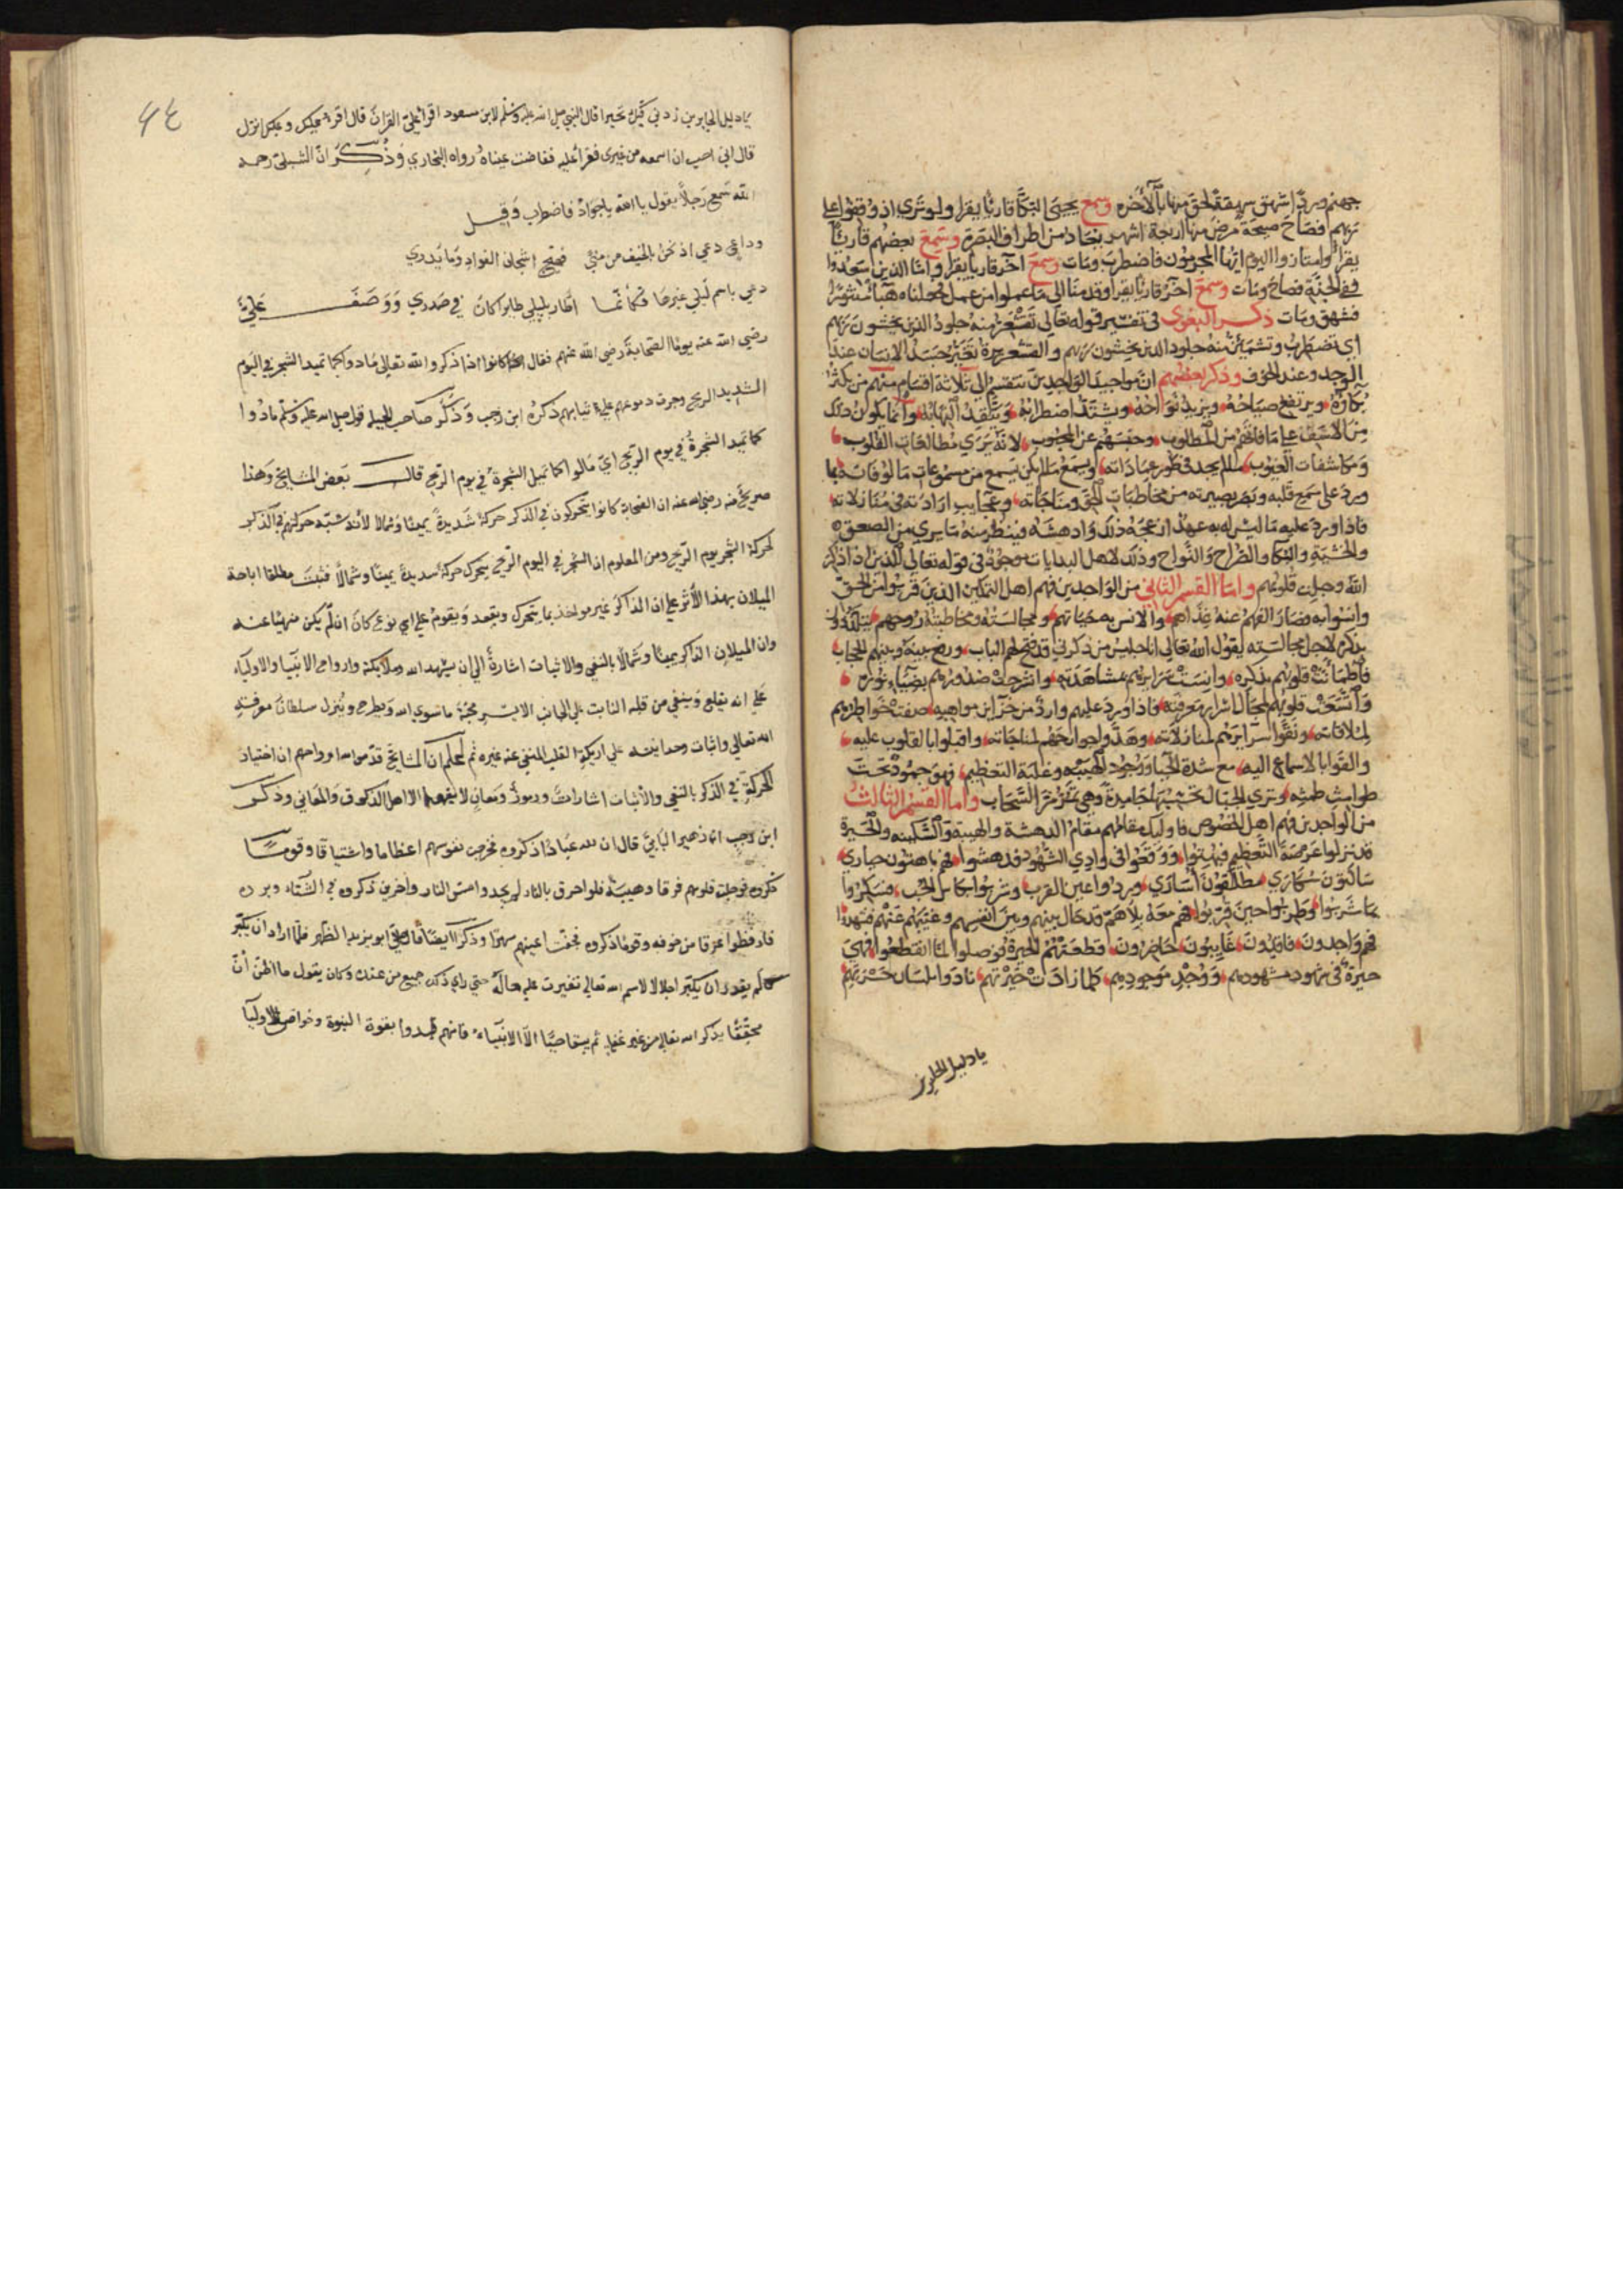 جهنم ورد اشهق شهقة لحق منها بالآخره وسمع يحيى البكا قاريا يقرا ولو ترى اذ وقفوا على
ربهم فصاح صيحة مرض منها اربعة اشهر يعاد من اطراف البصرة وسمع بعضهم قاريا
يقرا وامتازوا اليوم ايها المجرمون فاضطرب ومات وسمع آخر قاريا يقرا واما الذين سعدوا
ففي الجنة فصاح ومات وسمع آخر قاريا يقرا وقدمنا الى ما عملوا من عمل فجعلناه هباء منثورا
فشهق ومات ذكر البغوى فى تفسير قوله تعالى تقشعر منه جلود الذين يخشون ربهم
اى تضطرب وتشمئز منه جلود الذين يخشون ربهم والقشعريرة تغير جسد الانسان عند
الوجد وعند الخوف وذكر بعضهم ان مواجيد الواجدين تنقسم الى ثلاثة اقسام منهم من يكثر
بكاؤه ويرتفع صياحه ويزيد نواحه ويشتد اضطرابه ويتقد التهابه وانما يكون ذلك
من الاسف على ما فاتهم من المطلوب وحبسهم عن المحبوب لانه يرى مطالعات القلوب
ومكاشفات الغيوب ما لم يجد فى طور عباداته ويسمع ما لم يكن يسمع من مسموعات مالوفاته بما
ورد على سمع قلبه وبصر بصيرته من مخاطبات الحق ومناجاته وعجايب ارادته فى منازلاته
فاذا ورد عليه ما ليس له به عهد ازعجه ذلك وادهشه فينظر منه ما يرى من الصعق
والخشية والبكا والصراخ والنواح وذلك لاهل البدايات موجود فى قوله تعالى الذين اذا ذكر
الله وجلت قلوبهم واما القسم الثانى من الواجدين فهم اهل التمكين الذين قربوا من الحق
وانسوا به وصار الفهم عنه غذاهم والانس به حياتهم ومجالسته ومخاطبته روحهم يتلذذون
بذكره لاجل مجالسته يقول الله تعالى انا جليس من ذكرنى قد فتح لهم الباب ورفع بينه وبينهم الحجاب
فاطمأنت قلوبهم بذكره وانست سرايرهم بمشاهدته وانشرحت صدورهم بضياء نوره
واتسعت قلوبهم لمجال اسرار معرفته فاذا ورد عليهم وارد من خزاين مواهبه صفت خواطرهم
لملاقاته ونقوا سرايرهم لمنازلاته وهدوا جوارحهم لمناجاته واقبلوا بالقلوب عليه
والقوا بالاسماع اليه مع شدة الحيا ووجود الهيبه وغلبة التعظيم فهو جمود تحت
طوامس طمسه وترى الجبال تحسبها جامدة وهى تمر مر السحاب واما القسم الثالث
من الواجدين فهم اهل الخصوص فاوليك مقامهم مقام الدهشة والهيبة والسكينه والحيرة
قد نزلوا عرصة التعظيم فبهتوا ووقعوا فى وادى الشهود فدهشوا فهم باهتون حيارى
ساكتون سكارى مطلقون أسارى وردوا عين القرب وشربوا بكاس الحب فسكروا
بما شربوا وطربوا حين قربوا فهم معه بلاهم قد حال بينهم وبين انفسهم وغيبهم عنهم فشهدوا
فهم واجدون فاقدون غايبون حاضرون قطعتهم الحيرة فوصلوا لما انقطعوا فهى
حيرة فى شهود مشهودهم ووجد موجودهم كلما زادت حيرتهم نادوا بلسان حسرتهم
يا دليل الحايرين
٤٤
يا دليل الحايرين زدنى فيك تحيرا قال النبى صلى الله عليه وسلم لابن مسعود اقرا على القران قال اقرا عليك وعليك انزل
قال انى احب ان اسمعه من غيرى فقرا عليه ففاضت عيناه رواه البخارى وذكر ان الشبلى رحمه
الله سمع رجلا يقول يا الله يا جواد فاضطرب وقيل
وداعى دعى اذ نحن بالخيف من منى فهيج اشجان الفواد وما يدرى
دعى باسم ليلى غيرها فكأنما اطار بليلى طايرا كان فى صدرى ووصف على
رضى الله عنه يوما الصحابة رضى الله عنهم فقال كانوا اذا ذكروا الله تعالى مادوا كما تميد الشجر فى اليوم
الشديد الريح وجرت دموعهم على ثيابهم ذكره ابن رجب وذكر صاحب الحيله قول صلى الله عليه وسلم مادوا
كما تميد الشجرة فى يوم الريح اى مالوا كما تميل الشجرة فى يوم الريح قال بعض المشايخ وهذا
صريح منه رضى الله عنه ان الصحابة كانوا يتحركون فى الذكر حركة شديدة يمينا وشمالا لأنه شبه حركتهم فى الذكر
لحركة الشجر يوم الريح ومن المعلوم ان الشجر فى اليوم الريح يتحرك حركة شديدة يمينا وشمالا فثبت مطلقا اباحة
الميلان بهذا الأثر على ان الذاكر غير مواخذ بما يتحرك ويقعد ويقوم على اى نوع كان ان لم يكن منهيا عنه
وان الميلان الذاكر يمينا وشمالا بالنفى والاثبات اشارة الى ان يشهد الله وملايكته وارواح الانبيا والاولياء
على انه يقلع وينفى من قلبه النابت على الجانب الايسر محبة ما سوى الله ويطرح وينزل سلطان معرفته
الله تعالى واثبات وحدانيته على اريكة القلب المنفى عنه غيره ثم لتعلم ان المشايخ قدس الله ارواحهم ان اختيار
الحركة فى الذكر بالنفى والأثبات اشارات ورموز ومعان لا يفهمها الا اهل الذوق والمعانى وذكر
ابن رجب ان زهير البابى قال ان لله عبادا ذكروه فخرجت نفوسهم اعظاما واشتياقا وقوما
ذكروه فوجلت قلوبهم فرقا وهيبة فلو احرق بالنار لم يجدوا مس النار واخرين ذكروه فى الشتاء وبرده
فارفضوا عرقا من خوفه وقوما ذكروه فجفت اعينهم سهرا وذكر ايضا قال صلى ابو يزيد الظهر فلما اراد ان يكبر
لم يقدر ان يكبر اجلالا لاسم الله تعالى تغيرت عليه حاله حتى راى ذلك جميع من عنده وكان يقول ما اظن أن
محققا يذكر الله تعالى من غير غفلة ثم يبقا حيا الا الانبياء فانهم ايدوا بقوة النبوة وخواص الاوليا